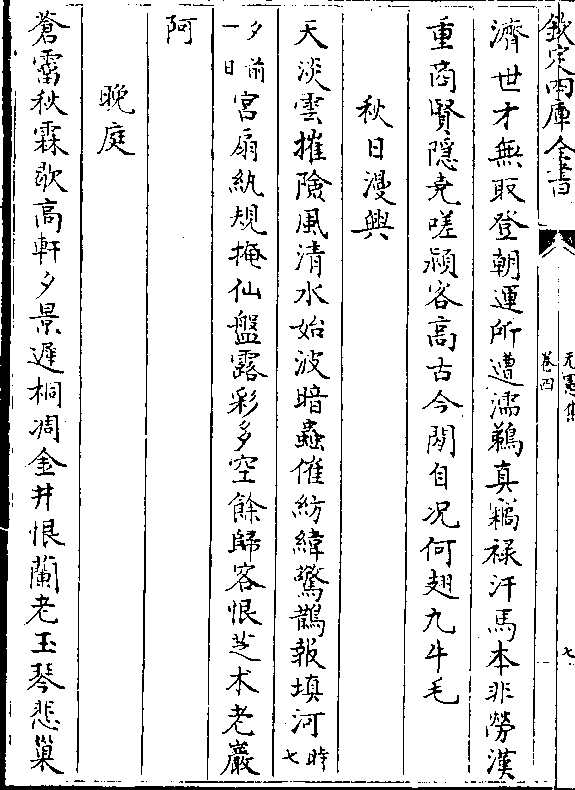 欽定四庫全書
元憲集
卷四
七
濟世才無取登朝運所遭濡鵜真竊禄汗馬本非勞漢
重商賢隠堯嗟潁客髙古今閒自况何翅九牛毛
秋日漫興
天淡雲摧險風清水始波暗蟲催紡緯驚鵲報填河時七
夕前一日宫扇紈規掩仙盤露彩多空餘歸客恨芝术老巖
阿
晚庭
蒼霤秋霖歇高軒夕景遲桐凋金井恨蘭老玉琴悲巢